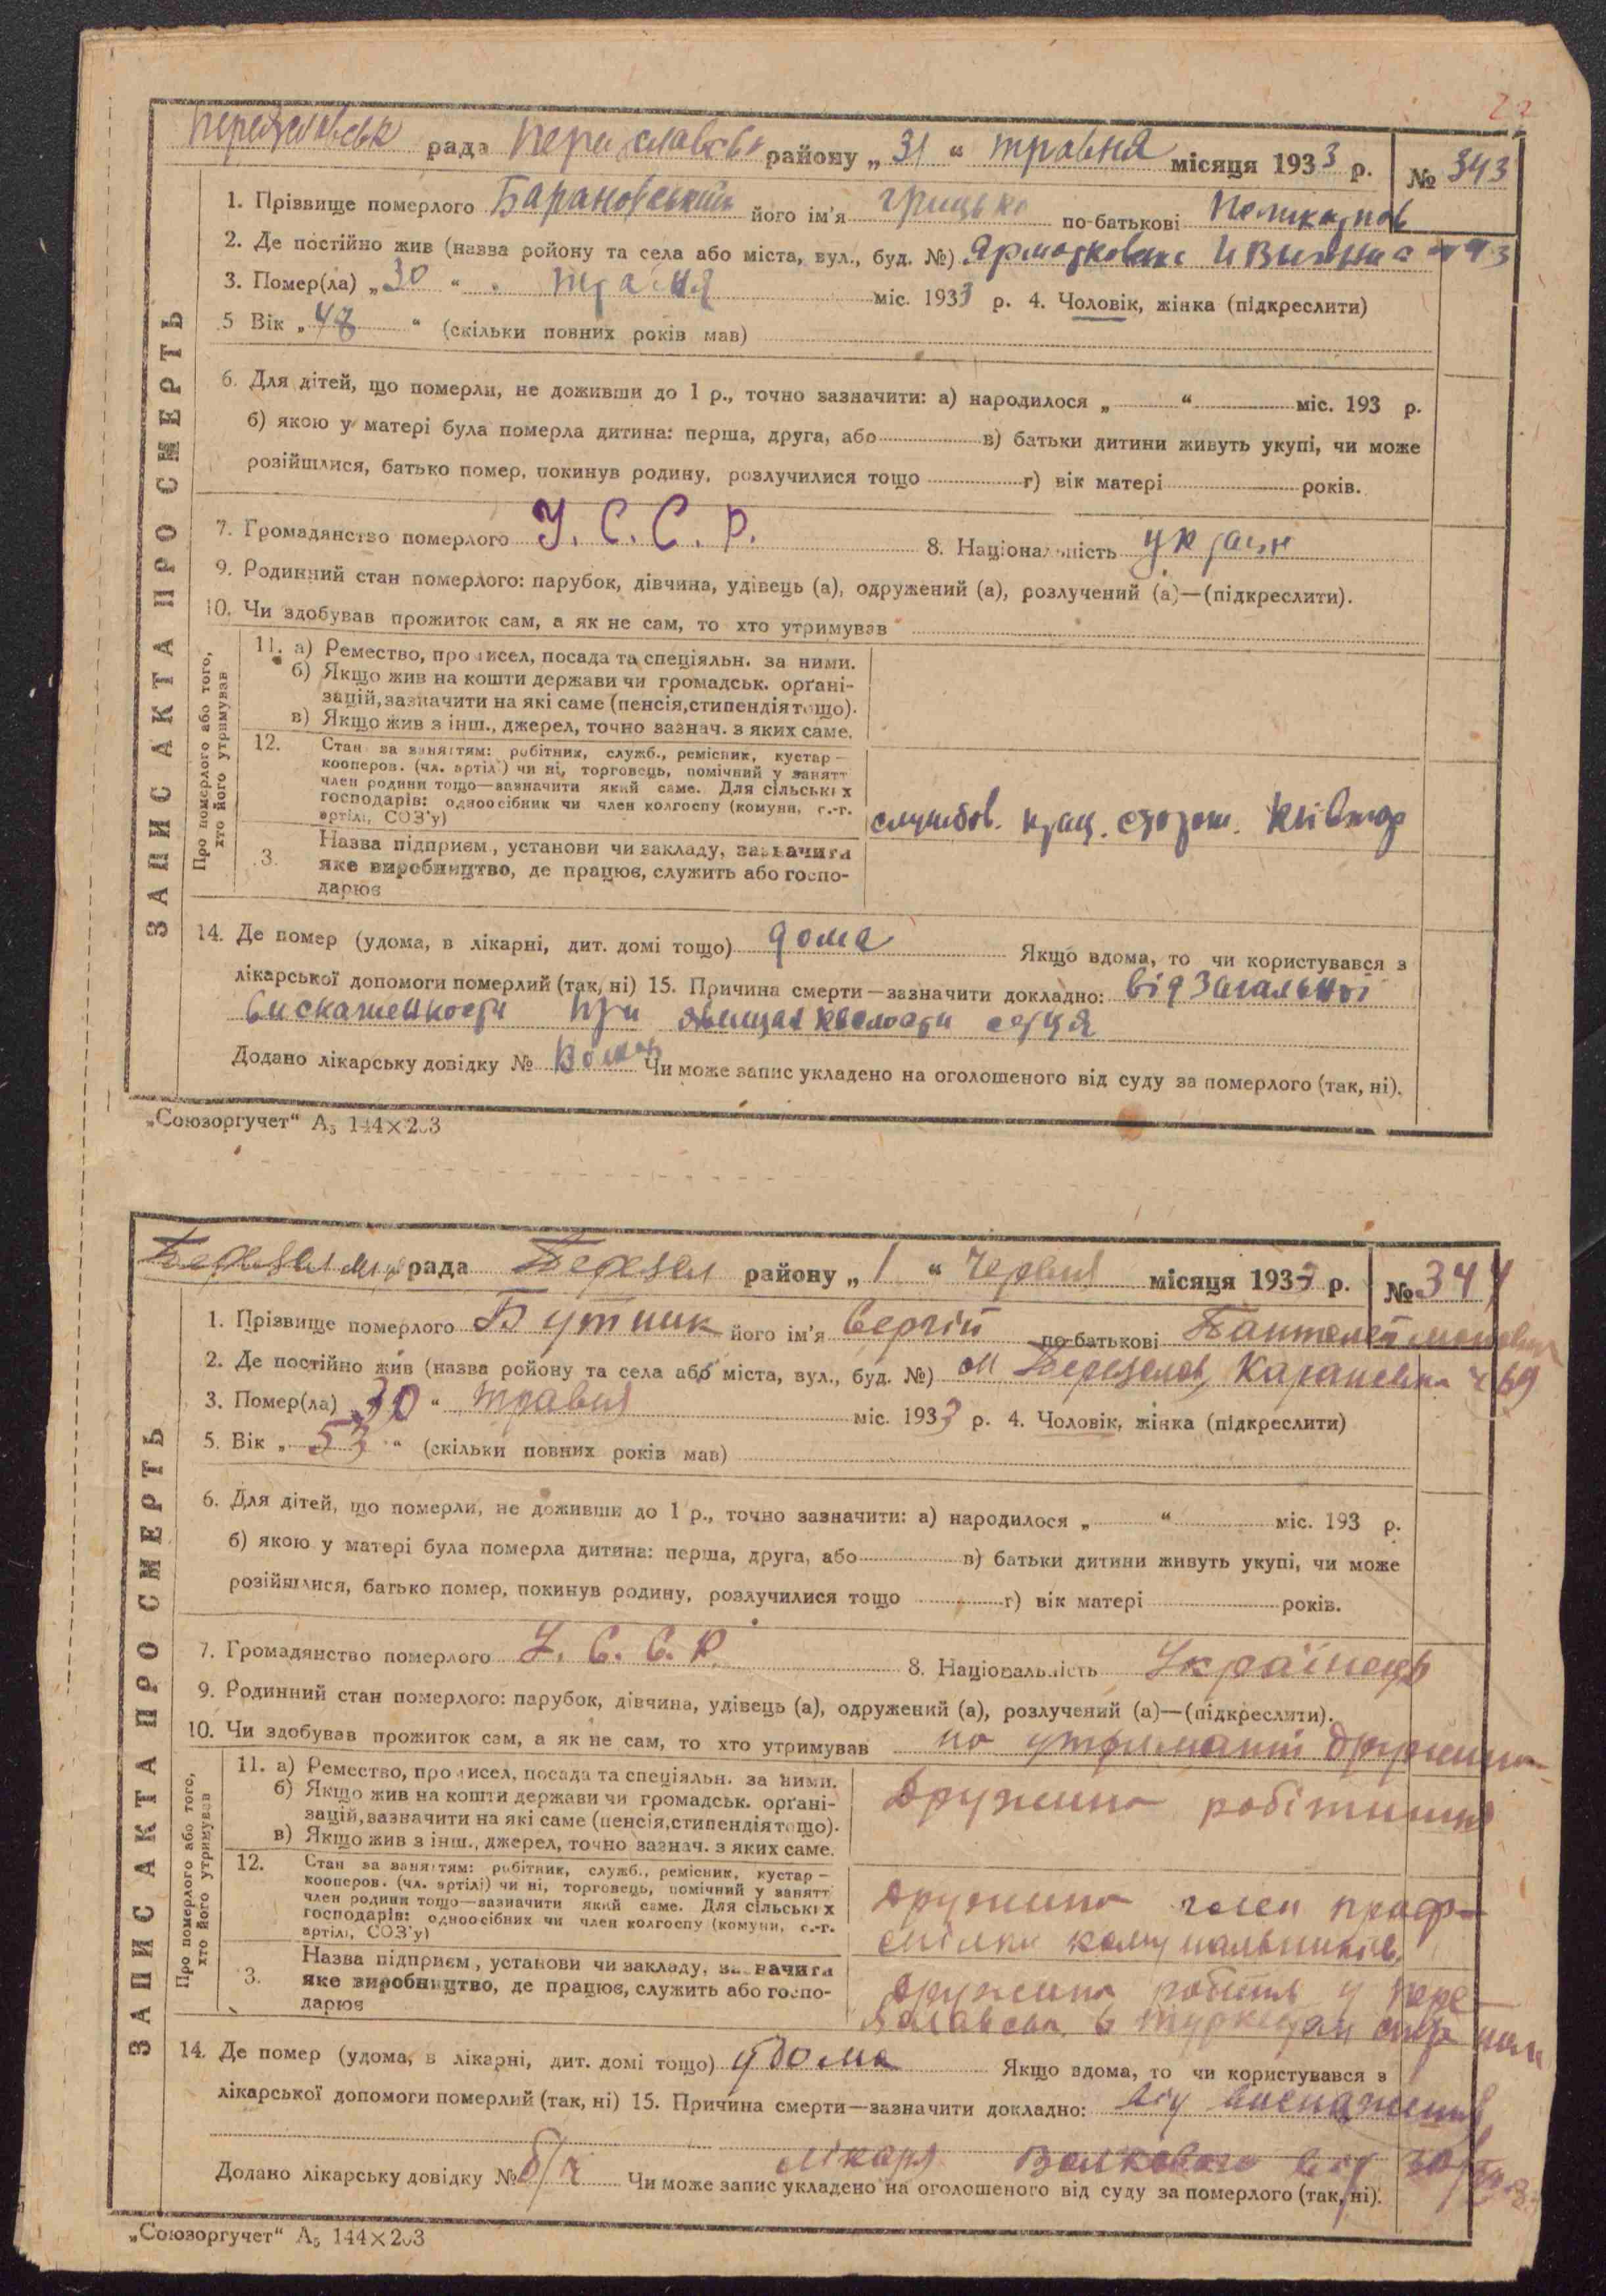 рада района „ 31 “ травня місяця 1933 р. № 343
1. Прізвище померлого Барановський його ім'я Грицько по-батькові Поликарпов
2. Де постійно жив (назва ройону та села або міста, вул., буд. №)
3. Помер(ла) „ 30 “ травня міс. 1933 р. 4. Чоловік, жінка (підкреслити)
5 Вік „ “ (скільки повних років мав)
6. Для дітей, що померли, не доживши до 1 р., точно зазначити: а) народилося „ “ міс. 193 р.
б) якою у матері була померла дитина: перша, друга, або в) батьки дитини живуть укупі, чи може
розійшлися, батько помер, покинув родину, розлучилися тощо г) вік матері років.
7. Громадянство померлого У. С. С. Р. 8. Національність
9. Родинний стан померлого: парубок, дівчина, удівець (а), одружений (а), розлучений (а)—(підкреслити).
10. Чи здобував прожиток сам, а як не сам, то хто утримував
ЗАПИС АКТА ПРО СМЕРТЬ
Про померлого або того,
хто його утримував
11. а) Ремество, промисел, посада та спеціяльн. за ними.
б) Якщо жив на кошти держави чи громадськ. орґані-
зацій, зазначити на які саме (пенсія, стипендія тощо).
в) Якщо жив з інш., джерел, точно зазнач. з яких саме.
12. Стан за заняттям: робітник, служб., ремісник, кустар—
кооперов. (чл. артілі) чи ні, торговець, помічний у занятт
член родини тощо—зазначити який саме. Для сільських
господарів: одноосібник чи член колгоспу (комуни, с.-г.
артілі, СОЗ'у)
службов.
3. Назва підприєм, установи чи закладу, зазначити
яке виробництво, де працює, служить або госпо-
дарює
14. Де помер (удома, в лікарні, дит. домі тощо) дома Якщо вдома, то чи користувався з
лікарської допомоги померлий (так, ні) 15. Причина смерти—зазначити докладно: від загальної
при сердця
Додано лікарську довідку № Чи може запис укладено на оголошеного від суду за померлого (так, ні).
„Союзоргучет“ А₅ 144×203
рада района „ 1 “ червня місяця 1933 р. № 344
1. Прізвище померлого Бутник його ім'я Сергій по-батькові Пантелеймонович
2. Де постійно жив (назва ройону та села або міста, вул., буд. №) м 69
3. Помер(ла) 30 “ травня міс. 1933 р. 4. Чоловік, жінка (підкреслити)
5. Вік „ 53 “ (скільки повних років мав)
6. Для дітей, що померли, не доживши до 1 р., точно зазначити: а) народилося „ “ міс. 193 р.
б) якою у матері була померла дитина: перша, друга, або в) батьки дитини живуть укупі, чи може
розійшлися, батько помер, покинув родину, розлучилися тощо г) вік матері років.
7. Громадянство померлого У. С. С. Р. 8. Національність Українець
9. Родинний стан померлого: парубок, дівчина, удівець (а), одружений (а), розлучений (а)—(підкреслити).
10. Чи здобував прожиток сам, а як не сам, то хто утримував на утриманні дружини
ЗАПИС АКТА ПРО СМЕРТЬ
Про померлого або того,
хто його утримував
11. а) Ремество, промисел, посада та спеціяльн. за ними.
б) Якщо жив на кошти держави чи громадськ. орґані-
зацій, зазначити на які саме (пенсія, стипендія тощо).
в) Якщо жив з інш., джерел, точно зазнач. з яких саме.
дружина робітниця
12. Стан за заняттям: робітник, служб., ремісник, кустар—
кооперов. (чл. артілі) чи ні, торговець, помічний у занятт
член родини тощо—зазначити який саме. Для сільських
господарів: одноосібник чи член колгоспу (комуни, с.-г.
артілі, СОЗ'у)
дружина член проф-
спілки комунальників
3. Назва підприєм, установи чи закладу, зазначити
яке виробництво, де працює, служить або госпо-
дарює
дружина у Пере-
14. Де помер (удома, в лікарні, дит. домі тощо) удома Якщо вдома, то чи користувався з
лікарської допомоги померлий (так, ні) 15. Причина смерти—зазначити докладно: від виснаження
лікаря від
Додано лікарську довідку № б/ч Чи може запис укладено на оголошеного від суду за померлого (так, ні).
„Союзоргучет“ А₅ 144×203